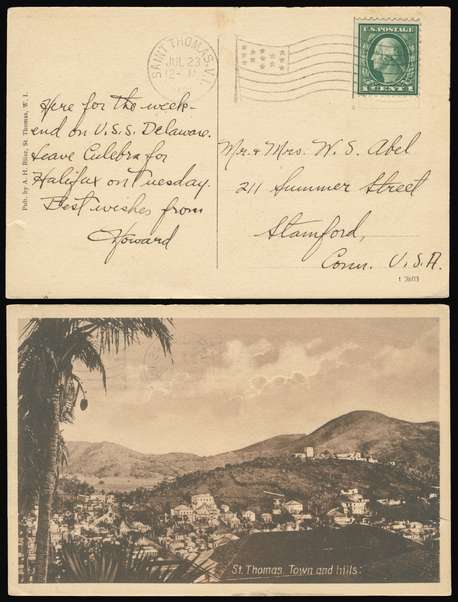 SAINT THOMAS, V.I.
JUL 23
12-
U.S. POSTAGE
1 CENT 1
Here for the week-
end on U.S.S. Delaware.
Leave Culebra for
Halifax on Tuesday.
Best wishes from
Howard
Mr. & Mrs. W. S. Abel
211 Summer Street
Stamford,
Conn. U.S.A.
Pub. by A. H. Riise, St. Thomas, W. I.
St. Thomas. Town and hills.